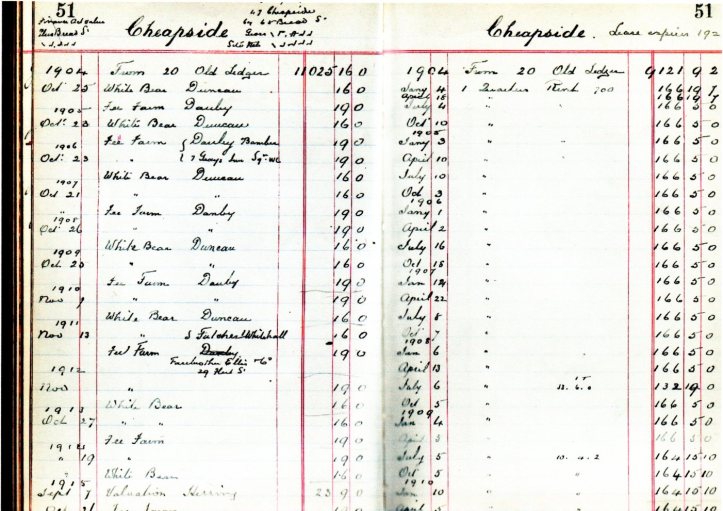 51
47 Cheapside
64 65 Bread St
Cheapside
1904 From 20 Old Ledger 11025 16 0
Oct 25 White Bear Duncan 16 0
1905 Fee Farm Danby 19 0
Oct 23 White Bear Duncan 16 0
1906 Fee Farm Danby 19 0
Oct 23 " 7 Grays Inn Sq WC 19 0
1907 White Bear Duncan 16 0
Oct 21 " " 16 0
" Fee Farm Danby 19 0
1908
Oct 26 " " 19 0
1909 White Bear Duncan 16 0
Oct 25 " " 16 0
1910 Fee Farm Danby 19 0
Nov 9 " " 19 0
1911 White Bear Duncan 16 0
Nov 13 " Whitehall 16 0
Fee Farm Danby 19 0
29 Fleet St
1912
Nov " 19 0
1913 White Bear 16 0
Oct 27 " " 16 0
1914 Fee Farm 19 0
" 19 " 19 0
1915 White Bear 16 0
Sept 7 Valuation Herring 23 9 0
51
Cheapside. Lease expires 192
1904 From 20 Old Ledger 9121 9 2
Jany 4 1 Quarters Rent 700 166 19 7
April 18 " 166 19 7
July 4 " " 166 5 0
Oct 10 " 166 5 0
1905
Jany 3 " " 166 5 0
April 10 " 166 5 0
July 10 " 166 5 0
Oct 3 " 166 5 0
1906
Jany 1 " 166 5 0
April 2 " 166 5 0
July 16 " 166 5 0
Oct 15 " 166 5 0
1907
Jan 14 " 166 5 0
April 22 " 166 5 0
July 8 " 166 5 0
Oct 7 " 166 5 0
1908
Jan 6 " 166 5 0
April 13 " 166 5 0
July 6 " 13. 6. 0 132 19 0
Oct 5 " 166 5 0
1909
Jan 4 " 166 5 0
April 5 " 166 5 0
July 5 " 10. 4. 2 164 15 10
Oct 5 " 164 15 10
1910
Jan 10 " " 164 15 10
April 5 " " 164 15 10